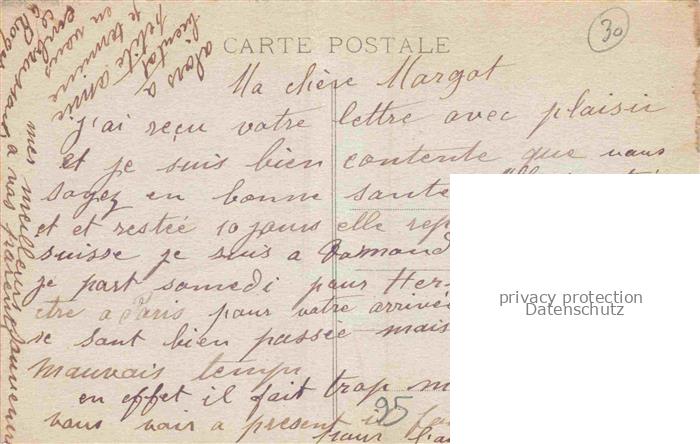 CARTE POSTALE
30
Ma chère Margot
J'ai reçu votre lettre avec plaisir
et je suis bien contente que vous
soyez en bonne santé
et et restée 10 jours elle rep
suisse je suis a
je part samedi pour Her
etre a Paris pour votre arrivée
se sont bien passée mais
mauvais temps
en effet il fait trop m
vous voir a present
pour
95
alors a
bientot
petite amie
je termine
en vous
embrassant
mes meilleurs
a vos parents
privacy protection
Datenschutz